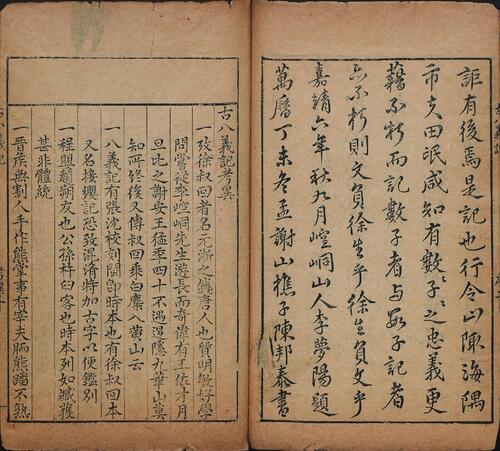 詎有後焉是記也行令山陬海隅
市夫田氓咸知有數子之忠義更
藉不朽而記數子者與數子記者
不朽則文負徐生乎徐生負文乎
嘉靖六年秋九月崆峒山人李夢陽題
萬曆丁未冬孟謝山樵子陳邦泰書
古八義記考異
一攷徐叔回者名元浙之錢唐人也質明敏好學
問嘗從李崆峒先生遊長而奇偉有王佐才月
旦比之謝安王猛季四十不遇混隱九華山莫
知所終後又傳叔回乘白麋入黃山云
一八義記有張沈校刻閩時本也有徐叔回本
又名接纓記恐致混淆特加古字以便鑑別
一程嬰趙朔友也公孫杵臼客也時本列如臧獲
甚非體統
晉侯無割人手作熊掌事有宰夫胹熊蹯不熟